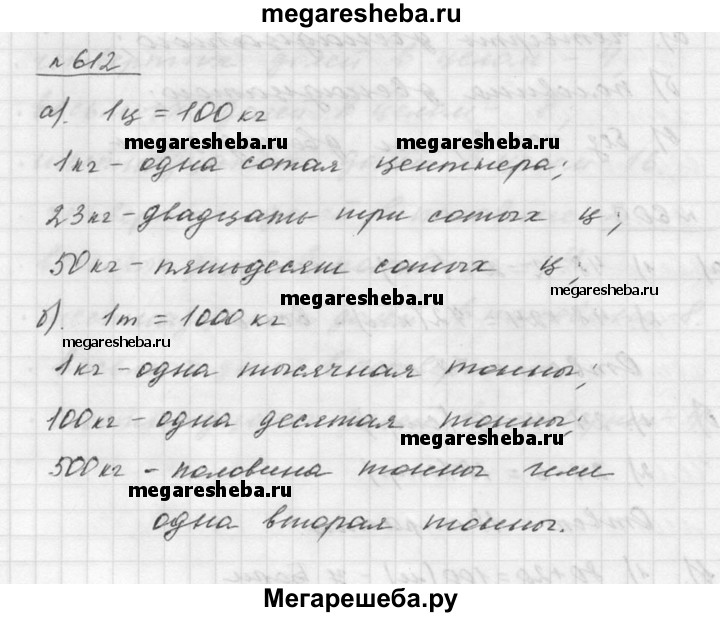 megaresheba.ru
№ 612
а). 1ц = 100 кг
megaresheba.ru megaresheba.ru
1кг - одна сотая центнера;
23кг - двадцать три сотых ц;
50кг - пятьдесят сотых ц;
megaresheba.ru megaresheba.ru
б). 1т = 1000 кг
megaresheba.ru
1кг - одна тысячная тонны;
100кг - одна десятая тонны;
megaresheba.ru
500кг - половина тонны или
megaresheba.ru
одна вторая тонны.
Мегарешеба.ру